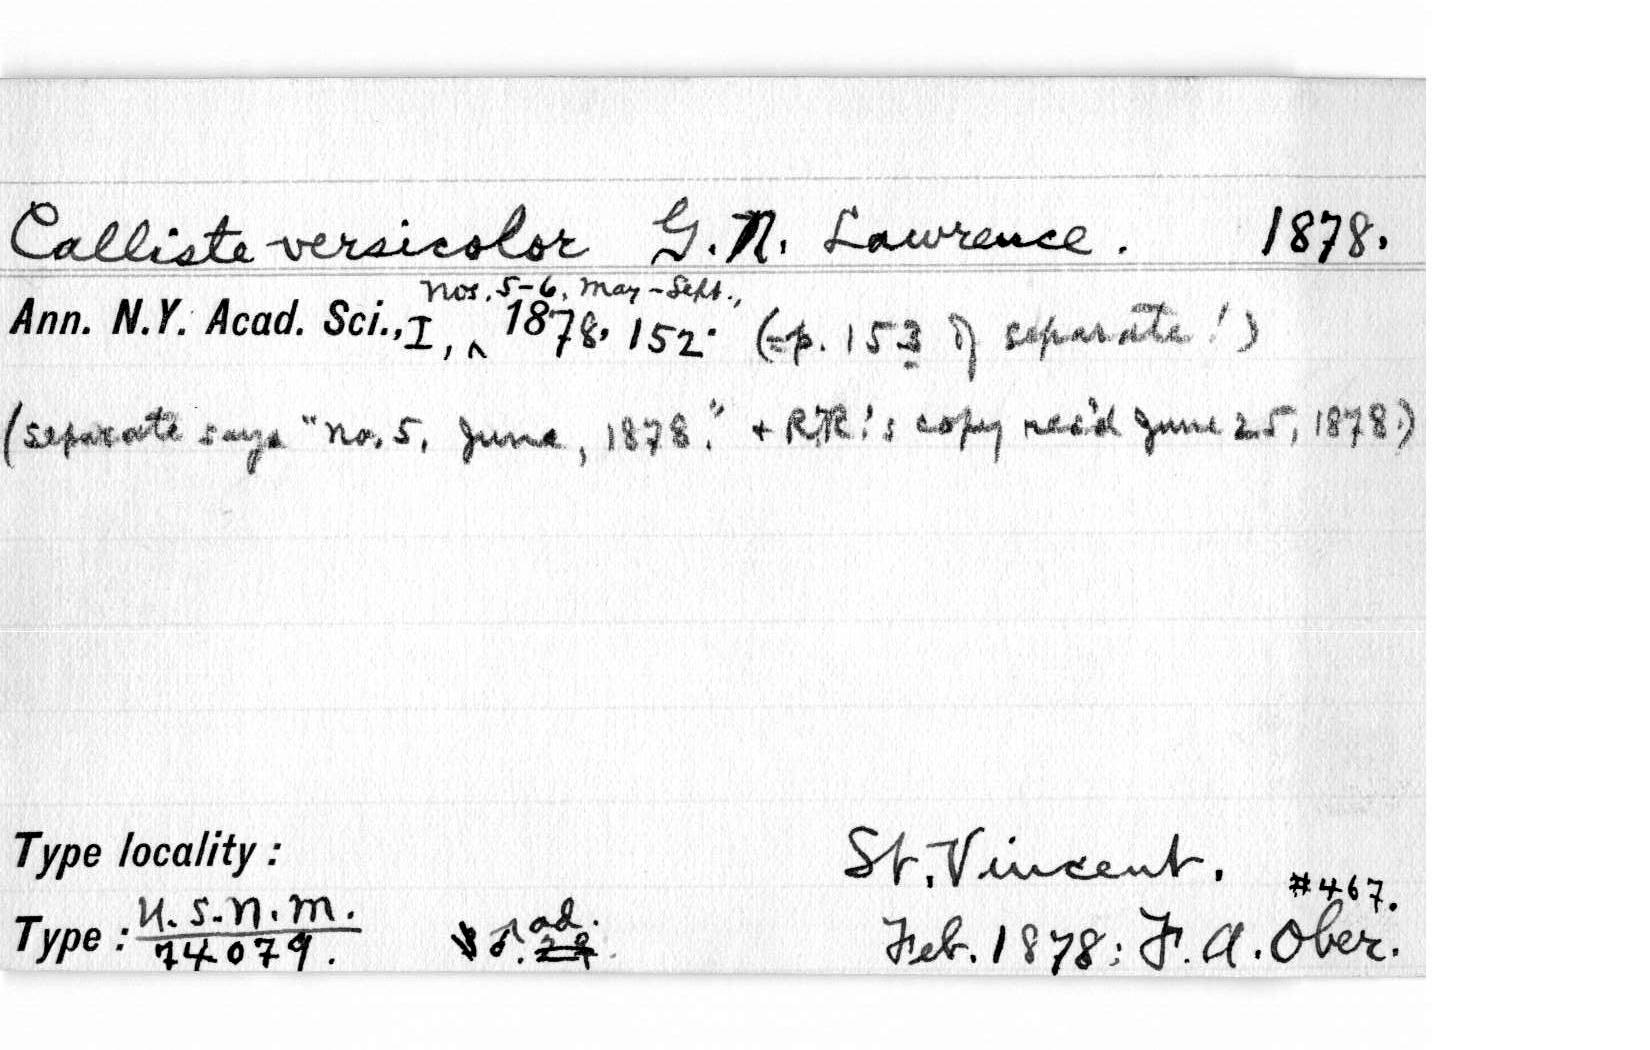 Calliste versicolor G. N. Lawrence. 1878.
nos. 5-6, May-Sept.,
Ann. N.Y. Acad. Sci., I, ^ 1878, 152. (=p. 153 of separate!)
(separate says "no. 5, June, 1878." + RR's copy rec'd June 25, 1878.)
Type locality: St. Vincent.
#467.
Type: U.S.N.M. ad.
74079. Feb. 1878: F. A. Ober.